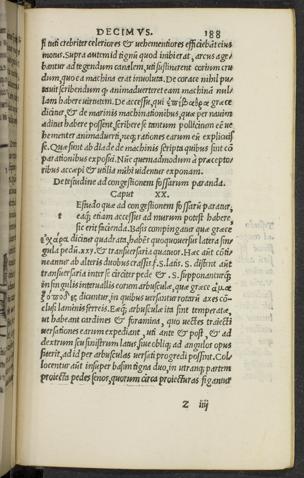 DECIMVS. 188
si uti crebriter celeriores & uehementiores efficiebāt eius
motus. Supra autem id tignū quod inibi erat, arcus age-
bantur ad tegendum canalem, uti sustinerent corium cru-
dum, quo ea machina erat inuoluta. De corace nihil pu-
tauit scribendum
lam habere uirtutem. De accessu, qui
dicitur, & de marinis machinationibus, quae per nauium
aditus habere possent, scribere se tantum pollicitum eē ue
hementer animaduerti, neq; rationes earum eū explicuis
se. Quae sunt ab diade de machinis scripta quibus sint cō
parationibus exposui. Nūc quemadmodum à praecepto
ribus accepi & utilia mihi uidentur exponam.
De testudine ad congestionem fossarum paranda.
Caput XX.
Estudo quae ad congestionem fossarū paratur,
eaq; etiam accessus ad murum potest habere,
sic erit facienda. Basis compingatur quae graece
dicitur quadrata, habēs quoquouersus latera sin-
gula pedū. xxv. & transuersaria quatuor. Haec aūt conti
neantur ab alteris duobus crassis
transuersaria inter se circiter pede & . S. supponanturq;
in singulis interuallis eorum arbusculae, quae graece
dicuntur, in quibus uersantur rotarū axes cō-
clusi laminis ferreis. Eaeq; arbusculae ita sint temperatae,
ut habeant cardines & foramina, quo uectes traiecti
uersationes earum expediant, uti ante & post, & ad
dextrum seu sinistrum latus siue obliq; ad angulos opus
fuerit, ad id per arbusculas uersati progredi possint. Col
locentur aūt insuper basim tigna duo, in utranq; partem
proiecta pedes senos, quorum circa proiecturas figantur
Z iiij